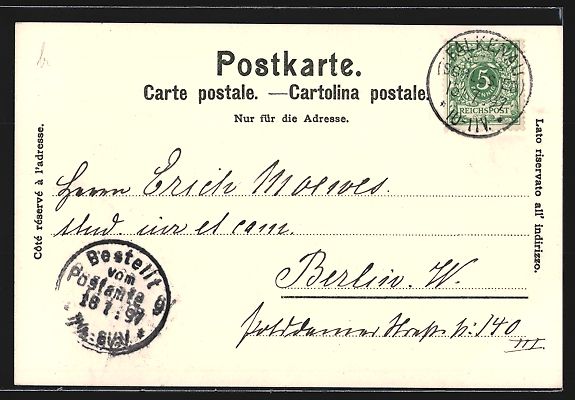 Postkarte.
Carte postale. — Cartolina postale.
Nur für die Adresse.
Côté réservé à l'adresse.
Lato riservato all' indirizzo.
5
REICHSPOST
Herrn Erich Moewes.
stud. iur et cam.
Berlin. W.
140
III
Bestellt
vom
Postamte 9
16 1. 97